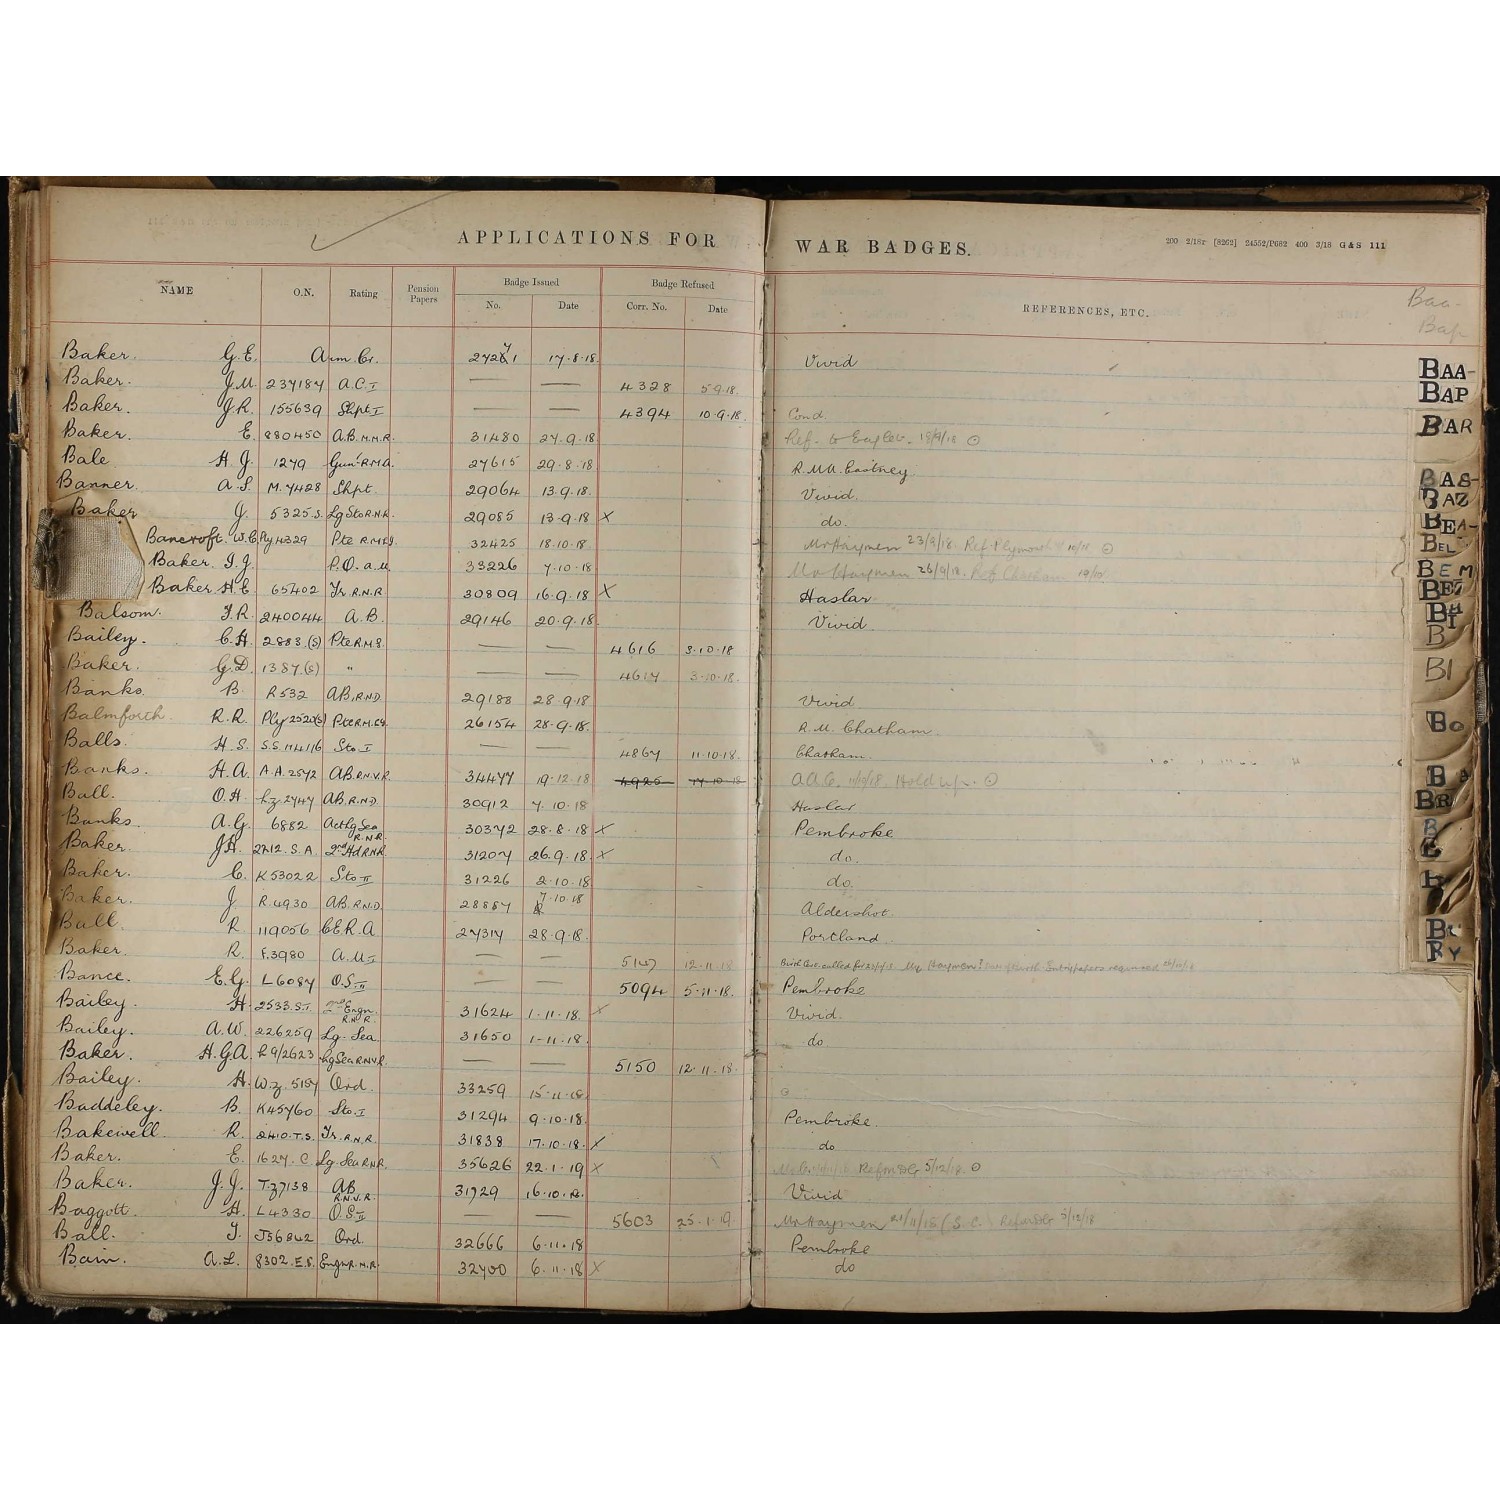 APPLICATIONS FOR WAR BADGES.
200 2/18T [8262] 24552/P682 400 3/18 G & S 111
NAME O.N. Rating Pension Papers Badge Issued Badge Refused REFERENCES, ETC.
No. Date Corr. No. Date
Baa-
Bap
Baker. G.E. Arm. Cr. 17.8.18. Vivid
Baker. J.M. 237187 A.C. I — — 4328 5.9.18.
Baker. J.R. 155639 Shpt I — — 4394 10.9.18. Cond
Baker. E. 880450 A.B. M.M.R. 31480 27.9.18 Ref. to Eaglet. 18/9/18
Bale H.J. 1279 Gunr R.M.A. 27615 29.8.18 R.M.A. Eastney
Banner. A.S. M.7428 Shpt. 29064 13.9.18. Vivid.
Baker J. 5325.S. Lg Sto R.N.R. 29085 13.9.18 X do.
Bancroft. W.C. Ply 4329 Pte R.M.L.I. 32425 18.10.18. Mr Haymen 23/9/18. Ref. Plymouth
Baker. T.J. P.O. a.m. 33226 7.10.18 Mr Haymen 26/9/18. Ref Chatham
Baker H.E. 65402 Tr. R.N.R 30809 16.9.18 X Haslar
Balsom. F.R. 240044 A.B. 29146 20.9.18. Vivid
Bailey. C.H. 2883.(S) Pte R.M.L.I. — — 4616 3.10.18
Baker. G.D. 1387(S) " — — 4617 3.10.18.
Banks. B. R532 AB, R.N.D. 29188 28.9.18 Vivid.
Balmforth. R.R. Ply 2520(S) Pte R.M.L.I. 26154 28.9.18. R.M. Chatham.
Balls. H.S. S.S.114116 Sto I — — 4867 11.10.18. Chatham.
Banks. H.A. A.A.2572 AB. R.N.V.R. 34477 19.12.18 4925 17.10.18 A.A.C. Hold up.
Ball. O.H. Lz.2747 AB. R.N.D. 30912 7.10.18 Haslar
Banks. A.G. 6882 Act Lg Sea R.N.R. 30372 28.8.18 X Pembroke
Baker. J.H. 2212.S.A 2nd Hd R.N.R. 31207 26.9.18. X do.
Baker. C. K53022 Sto II 31226 2.10.18 do.
Baker. J. R.4930 AB. R.N.D. 28887 7.10.18 Aldershot
Ball R. 119056 C.E.R.A 27317 28.9.18. Portland
Baker. R. F.3980 A.M. I — — 5147 12.11.18
Bance. E.G. L6087 O.S. II — — 5094 5.11.18. Pembroke
Bailey H. 2533.S.T. 2nd Engn. R.N.R. 31624 1.11.18. X Vivid.
Bailey. A.W. 226259 Lg. Sea. 31650 1.11.18. do
Baker. H.G.A. L9/2623 Lg Sea R.N.V.R. — — 5150 12.11.18.
Bailey. H. W.z.5157 Ord. 33259 15.11.18.
Baddeley. B. K45760 Sto. I 31294 9.10.18. Pembroke.
Bakewell. R. 2410.T.S. Tr. R.N.R. 31838 17.10.18. X do
Baker. E. 1627.C. Lg. Sea R.N.R. 35626 22.1.19 X 5/12/18.
Baker. J.J. T.z7138 AB R.N.V.R. 31729 16.10.18. Vivid
Baggott. H. L4330 O.S. II — — 5603 25.1.19 Mr Haymen 21/11/18 (S.C.) 5/12/18
Ball. T. J56842 Ord. 32666 6.11.18 Pembroke
Bain. A.L. 8302.E.S. Engn R.N.R. 32700 6.11.18 X do
BAA-
BAP
BAR
BAS-
BAZ
BEA-
BEL
BEM
BEZ
BH
BI
B
BI
BO
BR
BY